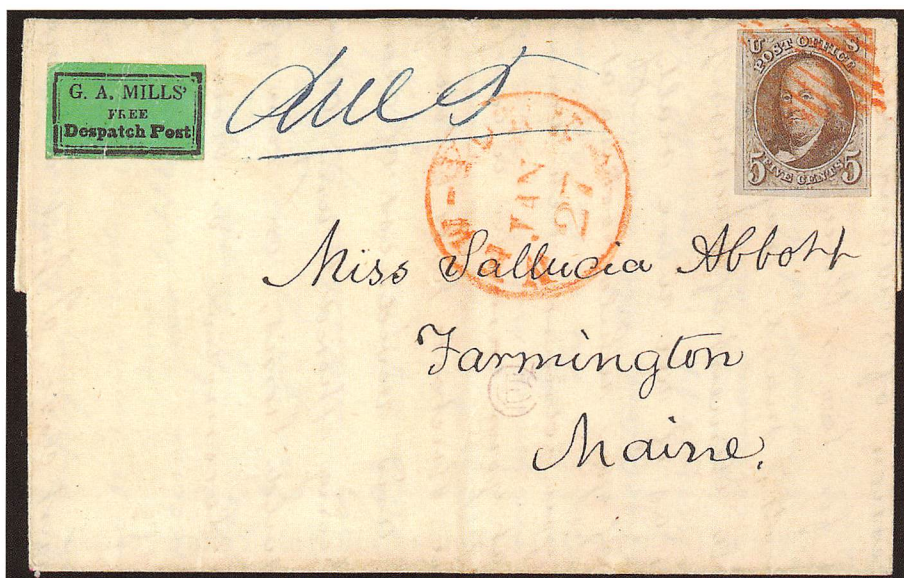 G. A. MILLS'
FREE
Despatch Post
Due 5
U S
POST OFFICE
5 FIVE CENTS 5
NEW-YORK
JAN
27
Miss Sallucia Abbott
Farmington
Maine.